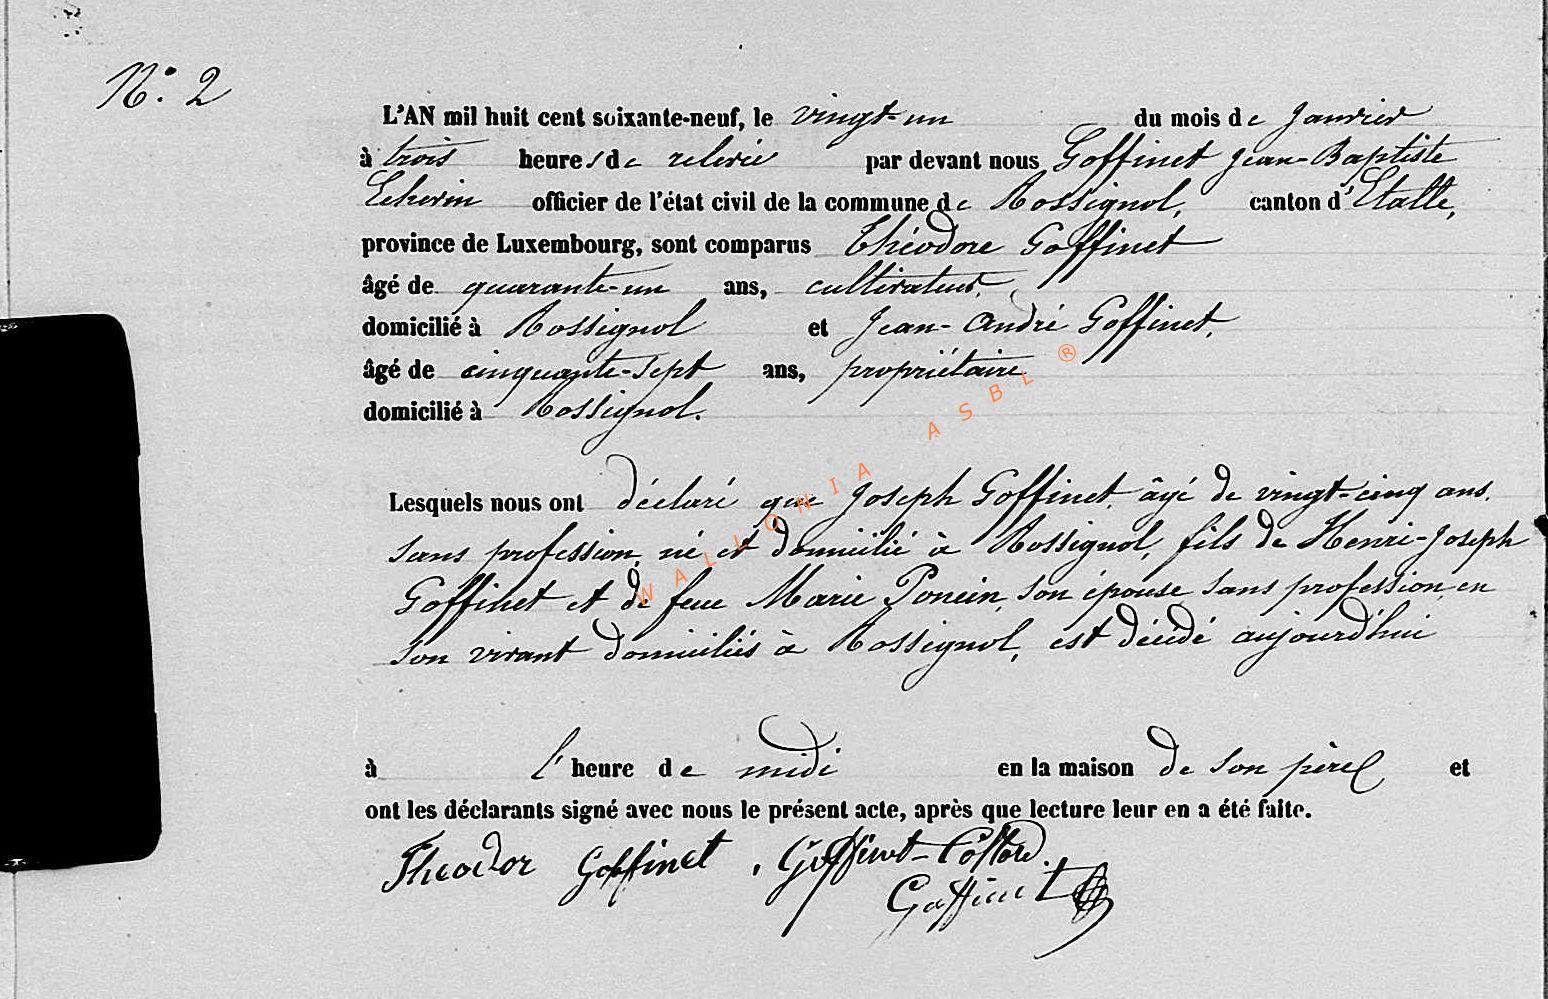 N°. 2
L'AN mil huit cent soixante-neuf, le vingt-un du mois de Janvier
à trois heures de relevée par devant nous Goffinet Jean-Baptiste
Echevin officier de l'état civil de la commune de Rossignol, canton d'Etalle,
province de Luxembourg, sont comparus Théodore Goffinet
âgé de quarante-un ans, cultivateur,
domicilié à Rossignol et Jean-André Goffinet,
âgé de cinquante-sept ans, propriétaire
domicilié à Rossignol.
Lesquels nous ont déclaré que Joseph Goffinet, âgé de vingt-cinq ans,
sans profession, né et domicilié à Rossignol, fils de Henri-Joseph
Goffinet et de feue Marie Poncin, son épouse sans profession, en
son vivant domiciliés à Rossignol, est décédé aujourd'hui
à l'heure de midi en la maison de son père et
ont les déclarants signé avec nous le présent acte, après que lecture leur en a été faite.
Theodor Goffinet, Goffinet-
Goffinet
WALLONIA ASBL ®